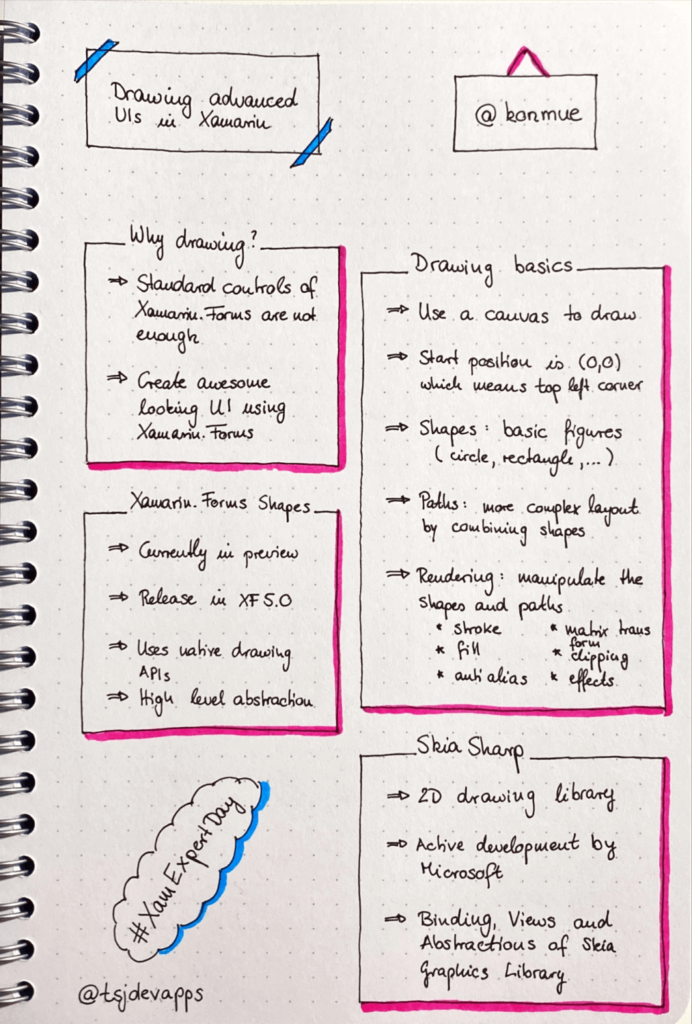 Drawing advanced
UIs in Xamarin
@ konmue
Why drawing?
⇒ Standard controls of
Xamarin.Forms are not
enough
⇒ Create awesome
looking UI using
Xamarin.Forms
Xamarin.Forms Shapes
⇒ Currently in preview
⇒ Release in XF 5.0
⇒ Uses native drawing
APIs
⇒ High level abstraction
Drawing basics
⇒ Use a canvas to draw
⇒ Start position is (0,0)
which means top left corner
⇒ Shapes: basic figures
(circle, rectangle,...)
⇒ Paths: more complex layout
by combining shapes
⇒ Rendering: manipulate the
shapes and paths
* stroke
* fill
* anti alias
* matrix trans
form
* clipping
* effects
Skia Sharp
⇒ 2D drawing library
⇒ Active development by
Microsoft
⇒ Binding, Views and
Abstractions of Skia
Graphics Library
#XamExpertDay
@tsjdevapps